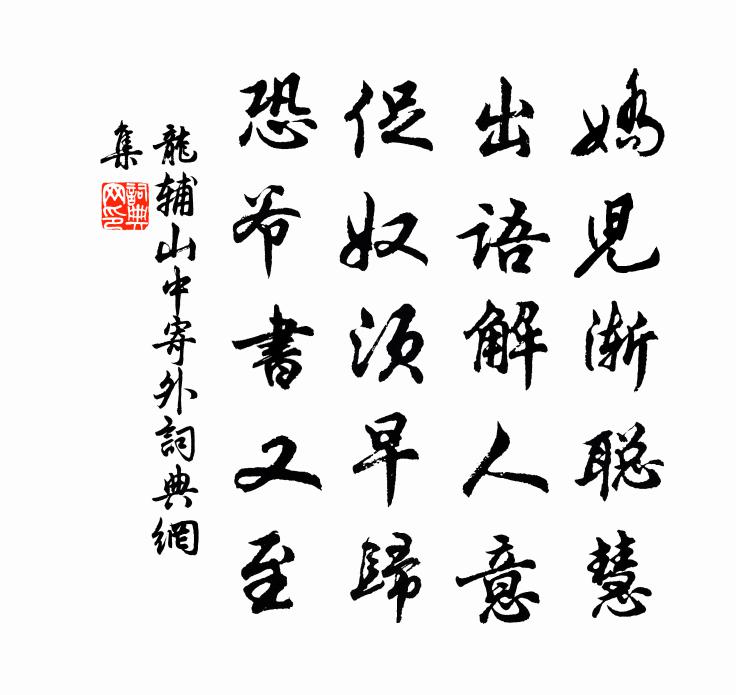 嬌児漸聡慧
出語解人意
促奴須早歸
恐爷書又至
龍辅山中寄外詞典網
集
詞典網印